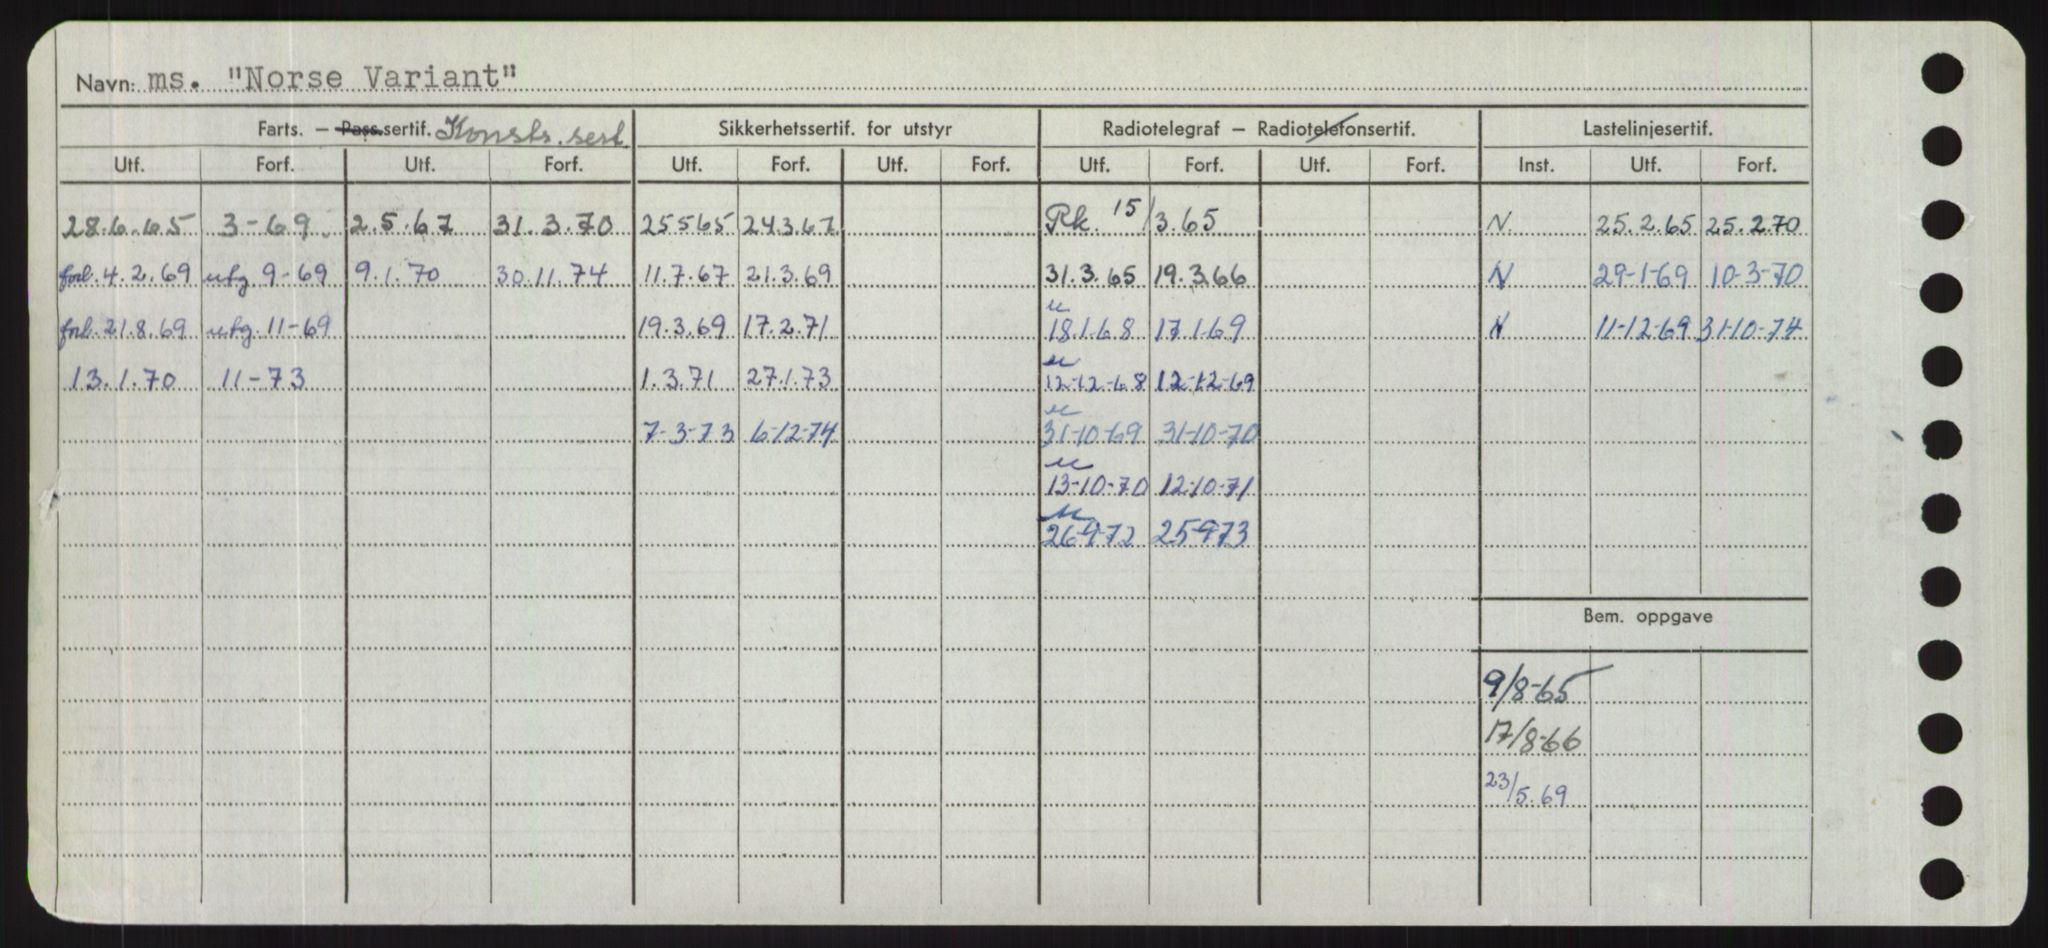 Navn: ms. "Norse Variant"
Farts. — Pass.sertif. Konstr. sert. Sikkerhetssertif. for utstyr Radiotelegraf — Radiotelefonsertif. Lastelinjesertif.
Utf. Forf. Utf. Forf. Utf. Forf. Utf. Forf. Utf. Forf. Utf. Forf. Inst. Utf. Forf.
28.6.65 3-69. 2.5.67 31.3.70 25565 24.3.67 Rk. 15/3.65 N. 25.2.65 25.2.70
forl. 4.2.69 utg 9-69 9.1.70 30.11.74 11.7.67 21.3.69 31.3.65 19.3.66 N 29-1-69 10-3-70
forl. 21.8.69 utg. 11-69 19.3.69 17.2.71 18.1.68 17.1.69 N 11-12-69 31-10-74
13.1.70 11-73 1.3.71 27.1.73 12-12-68 12-12-69
7-3-73 6-12-74 31-10-69 31-10-70
13-10-70 12-10-71
26-9-72 25-9-73
Bem. oppgave
9/8-65
17/8-66
23/5.69